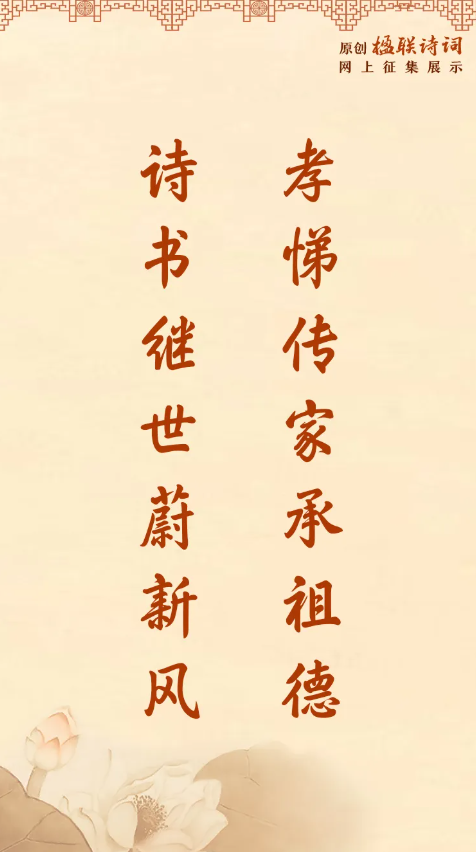 原创楹联诗词
网上征集展示
孝悌传家承祖德
诗书继世蔚新风